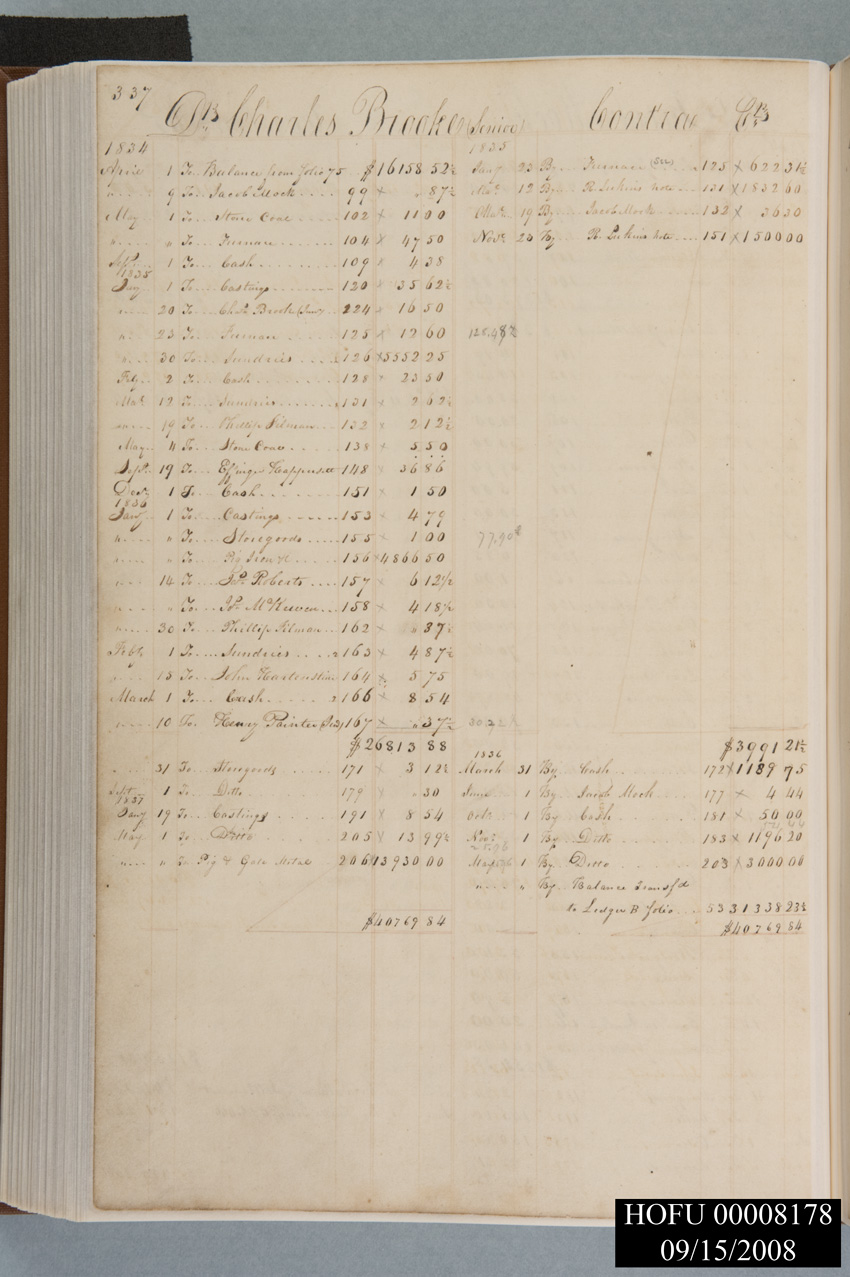 337
Dr. Charles Brooke (Senior) Contra Cr.
1834
April 1 To Balance from folio 75 $16158 52½
" 9 To Jacob Mock 99 × " 87½
May 1 To Stone Coal 102 × 11 00
" " To Furnace 104 × 47 50
Sept. 1 To Cash 109 × 4 38
1835
Jany 1 To Castings 120 × 35 62½
" 20 To Chs. Brooke (Junr) 224 × 16 50
" 23 To Furnace 125 × 12 60
" 30 To Sundries 126 × 5552 25
Feby 2 To Cash 128 × 23 50
Mar. 12 To Sundries 131 × 2 62½
" 19 To Phillip Filman 132 × 2 12½
May 4 To Stone Coal 138 × 5 50
Sept. 19 To Effinger Happersett 148 × 36 86
Decr. 1 To Cash 151 × 1 50
1836
Jany 1 To Castings 153 × 4 79
" " To Storegoods 155 × 1 00
" " To Pig Iron &c 156 × 4866 50
" 14 To Jos. Roberts 157 × 6 12½
" " To Jos. McKewen 158 × 4 18½
" 30 To Phillip Filman 162 × " 37½
Feby. 1 To Sundries 163 × 4 87½
" 15 To John Hartenstine 164 × 5 75
March 1 To Cash 166 × 8 54
" 10 To Henry Painter 167 × " 37½
$26813 88
" 31 To Storegoods 171 × 3 12½
Sept. 1 To Ditto 179 × " 30
1837
Jany 19 To Castings 191 × 8 54
May 1 To Ditto 205 × 13 99½
" " To Pig & Gate Metal 206 13930 00
$40769 84
1835
Jany 23 By Furnace 125 × 622 31½
Mar. 12 By R. Jenkins note 131 × 1832 60
Mar. 19 By Jacob Mock 132 × 36 30
Novr. 20 By R. Jenkins note 151 × 1500 00
128.48½
77.90
$3991 21½
1836
March 31 By Cash 172 × 1189 75
June 1 By Jacob Mock 177 × 4 44
Octr. 1 By Cash 181 × 50 00
Novr. 1 By Ditto 183 × 1196 20
May 1 By Ditto 203 × 3000 00
" " By Balance transfd
to Ledger B folio 53 31338 23½
$40769 84
HOFU 00008178
09/15/2008